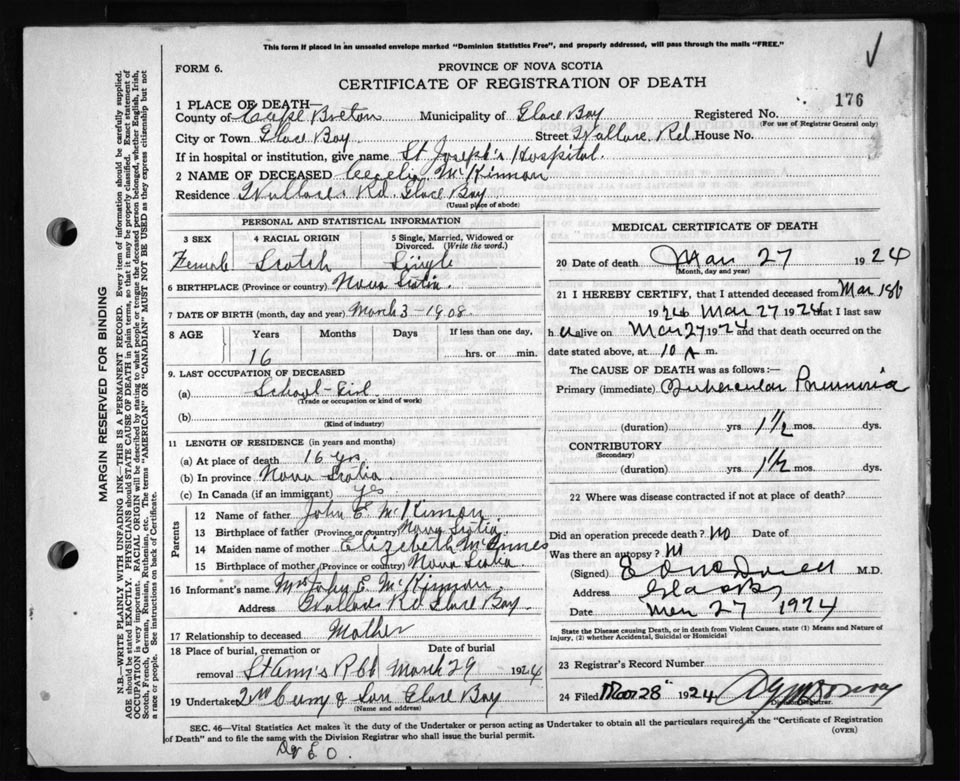 This form if placed in an unsealed envelope marked "Dominion Statistics Free", and properly addressed, will pass through the mails "FREE."
FORM 6.
PROVINCE OF NOVA SCOTIA
CERTIFICATE OF REGISTRATION OF DEATH
1 PLACE OF DEATH—
County of Cape Breton Municipality of Glace Bay Registered No. 176
(For use of Registrar General only)
City or Town Glace Bay Street Wallace Rd. House No.
If in hospital or institution, give name St Joseph's Hospital.
2 NAME OF DECEASED Cecelia McKinnon
Residence Wallace Rd. Glace Bay
(Usual place of abode)
PERSONAL AND STATISTICAL INFORMATION
3 SEX 4 RACIAL ORIGIN 5 Single, Married, Widowed or Divorced. (Write the word.)
Female Scotch Single
6 BIRTHPLACE (Province or country) Nova Scotia.
7 DATE OF BIRTH (month, day and year) March 3 - 1908
8 AGE Years Months Days If less than one day,
16 hrs. or min.
9. LAST OCCUPATION OF DECEASED
(a) School-Girl
(Trade or occupation or kind of work)
(b)
(Kind of industry)
11 LENGTH OF RESIDENCE (in years and months)
(a) At place of death 16 yrs.
(b) In province Nova Scotia.
(c) In Canada (if an immigrant) yes
Parents
12 Name of father John E. McKinnon
13 Birthplace of father (Province or country) Nova Scotia.
14 Maiden name of mother Elizabeth McInnes
15 Birthplace of mother (Province or country) Nova Scotia.
16 Informant's name Mrs John E. McKinnon
Address Wallace Rd Glace Bay.
17 Relationship to deceased Mother
18 Place of burial, cremation or Date of burial
removal St Ann's March 29 1924
19 Undertaker & Son Glace Bay
(Name and address)
MEDICAL CERTIFICATE OF DEATH
20 Date of death Mar 27 1924
(Month, day and year)
21 I HEREBY CERTIFY, that I attended deceased from Mar 1st
1924 Mar 27 1924 that I last saw
h er alive on Mar 27 1924 and that death occurred on
date stated above, at 10 A m.
The CAUSE OF DEATH was as follows:—
Primary (immediate) Tubercular Pneumonia
(duration) yrs 1½ mos. dys.
CONTRIBUTORY
(Secondary)
(duration) yrs 1½ mos. dys.
22 Where was disease contracted if not at place of death?
Did an operation precede death? No Date of
Was there an autopsy? No
(Signed) M.D.
Address Glace Bay
Date Mar 27 1924
State the Disease causing Death, or in death from Violent Causes, state (1) Means and Nature of Injury, (2) whether Accidental, Suicidal or Homicidal
23 Registrar's Record Number
24 Filed Mar 28" 1924
Division Registrar.
SEC. 46—Vital Statistics Act makes it the duty of the Undertaker or person acting as Undertaker to obtain all the particulars required in the "Certificate of Registration of Death" and to file the same with the Division Registrar who shall issue the burial permit.
(OVER)
MARGIN RESERVED FOR BINDING
N.B.—WRITE PLAINLY WITH UNFADING INK—THIS IS A PERMANENT RECORD. Every item of information should be carefully supplied.
AGE should be stated EXACTLY. PHYSICIANS should STATE CAUSE OF DEATH in plain terms, so that it may be properly classified. Exact statement of
OCCUPATION is very important. RACIAL ORIGIN will be described by stating to what people or tongue the deceased person belonged, whether English, Irish,
Scotch, French, German, Russian, Ruthenian, etc. The terms "AMERICAN" OR "CANADIAN" MUST NOT BE USED as they express citizenship but not
a race or people. See instructions on back of Certificate.